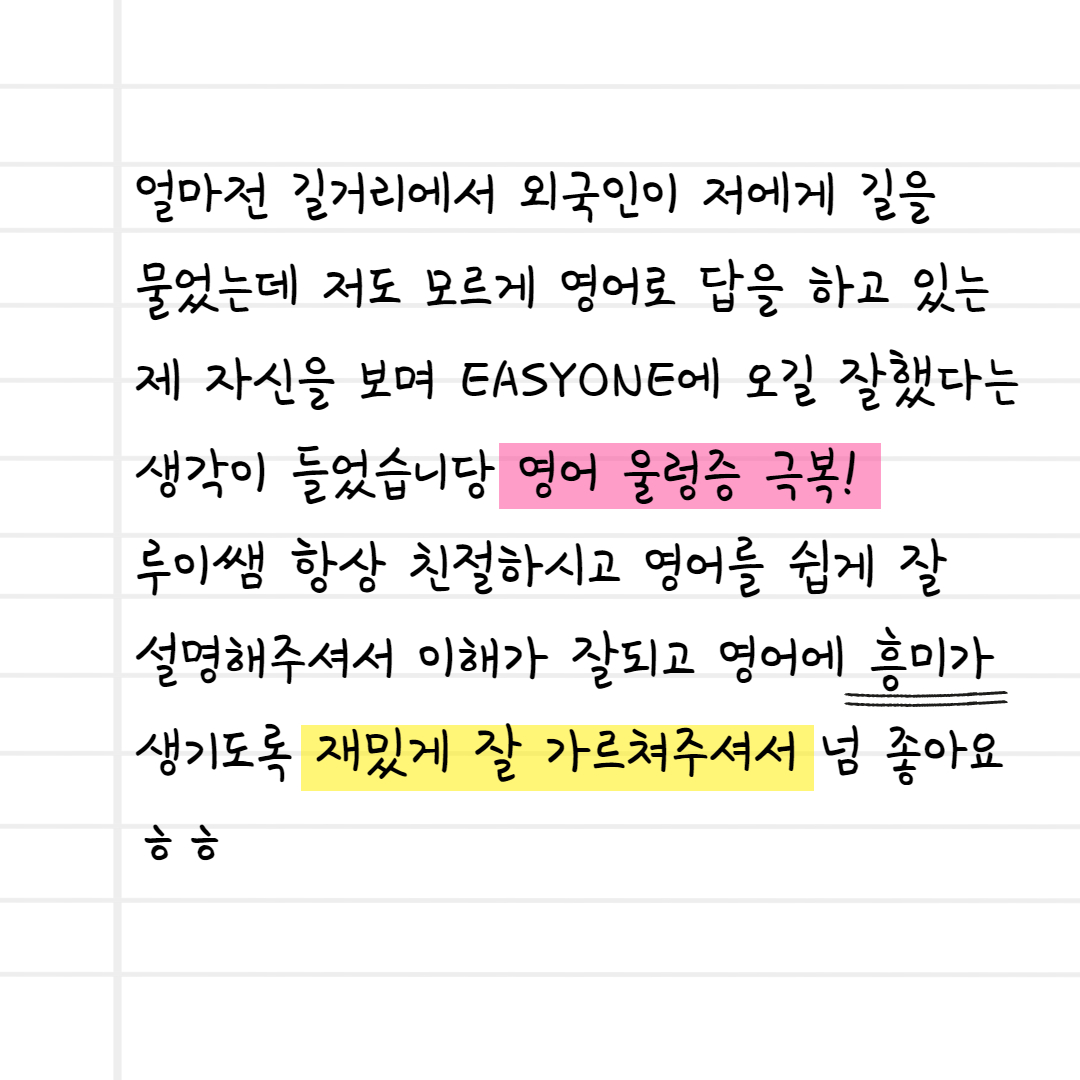 얼마전 길거리에서 외국인이 저에게 길을
물었는데 저도 모르게 영어로 답을 하고 있는
제 자신을 보며 EASYONE에 오길 잘했다는
생각이 들었습니당 영어 울렁증 극복!
루이쌤 항상 친절하시고 영어를 쉽게 잘
설명해주셔서 이해가 잘되고 영어에 흥미가
생기도록 재밌게 잘 가르쳐주셔서 넘 좋아요
ㅎㅎ